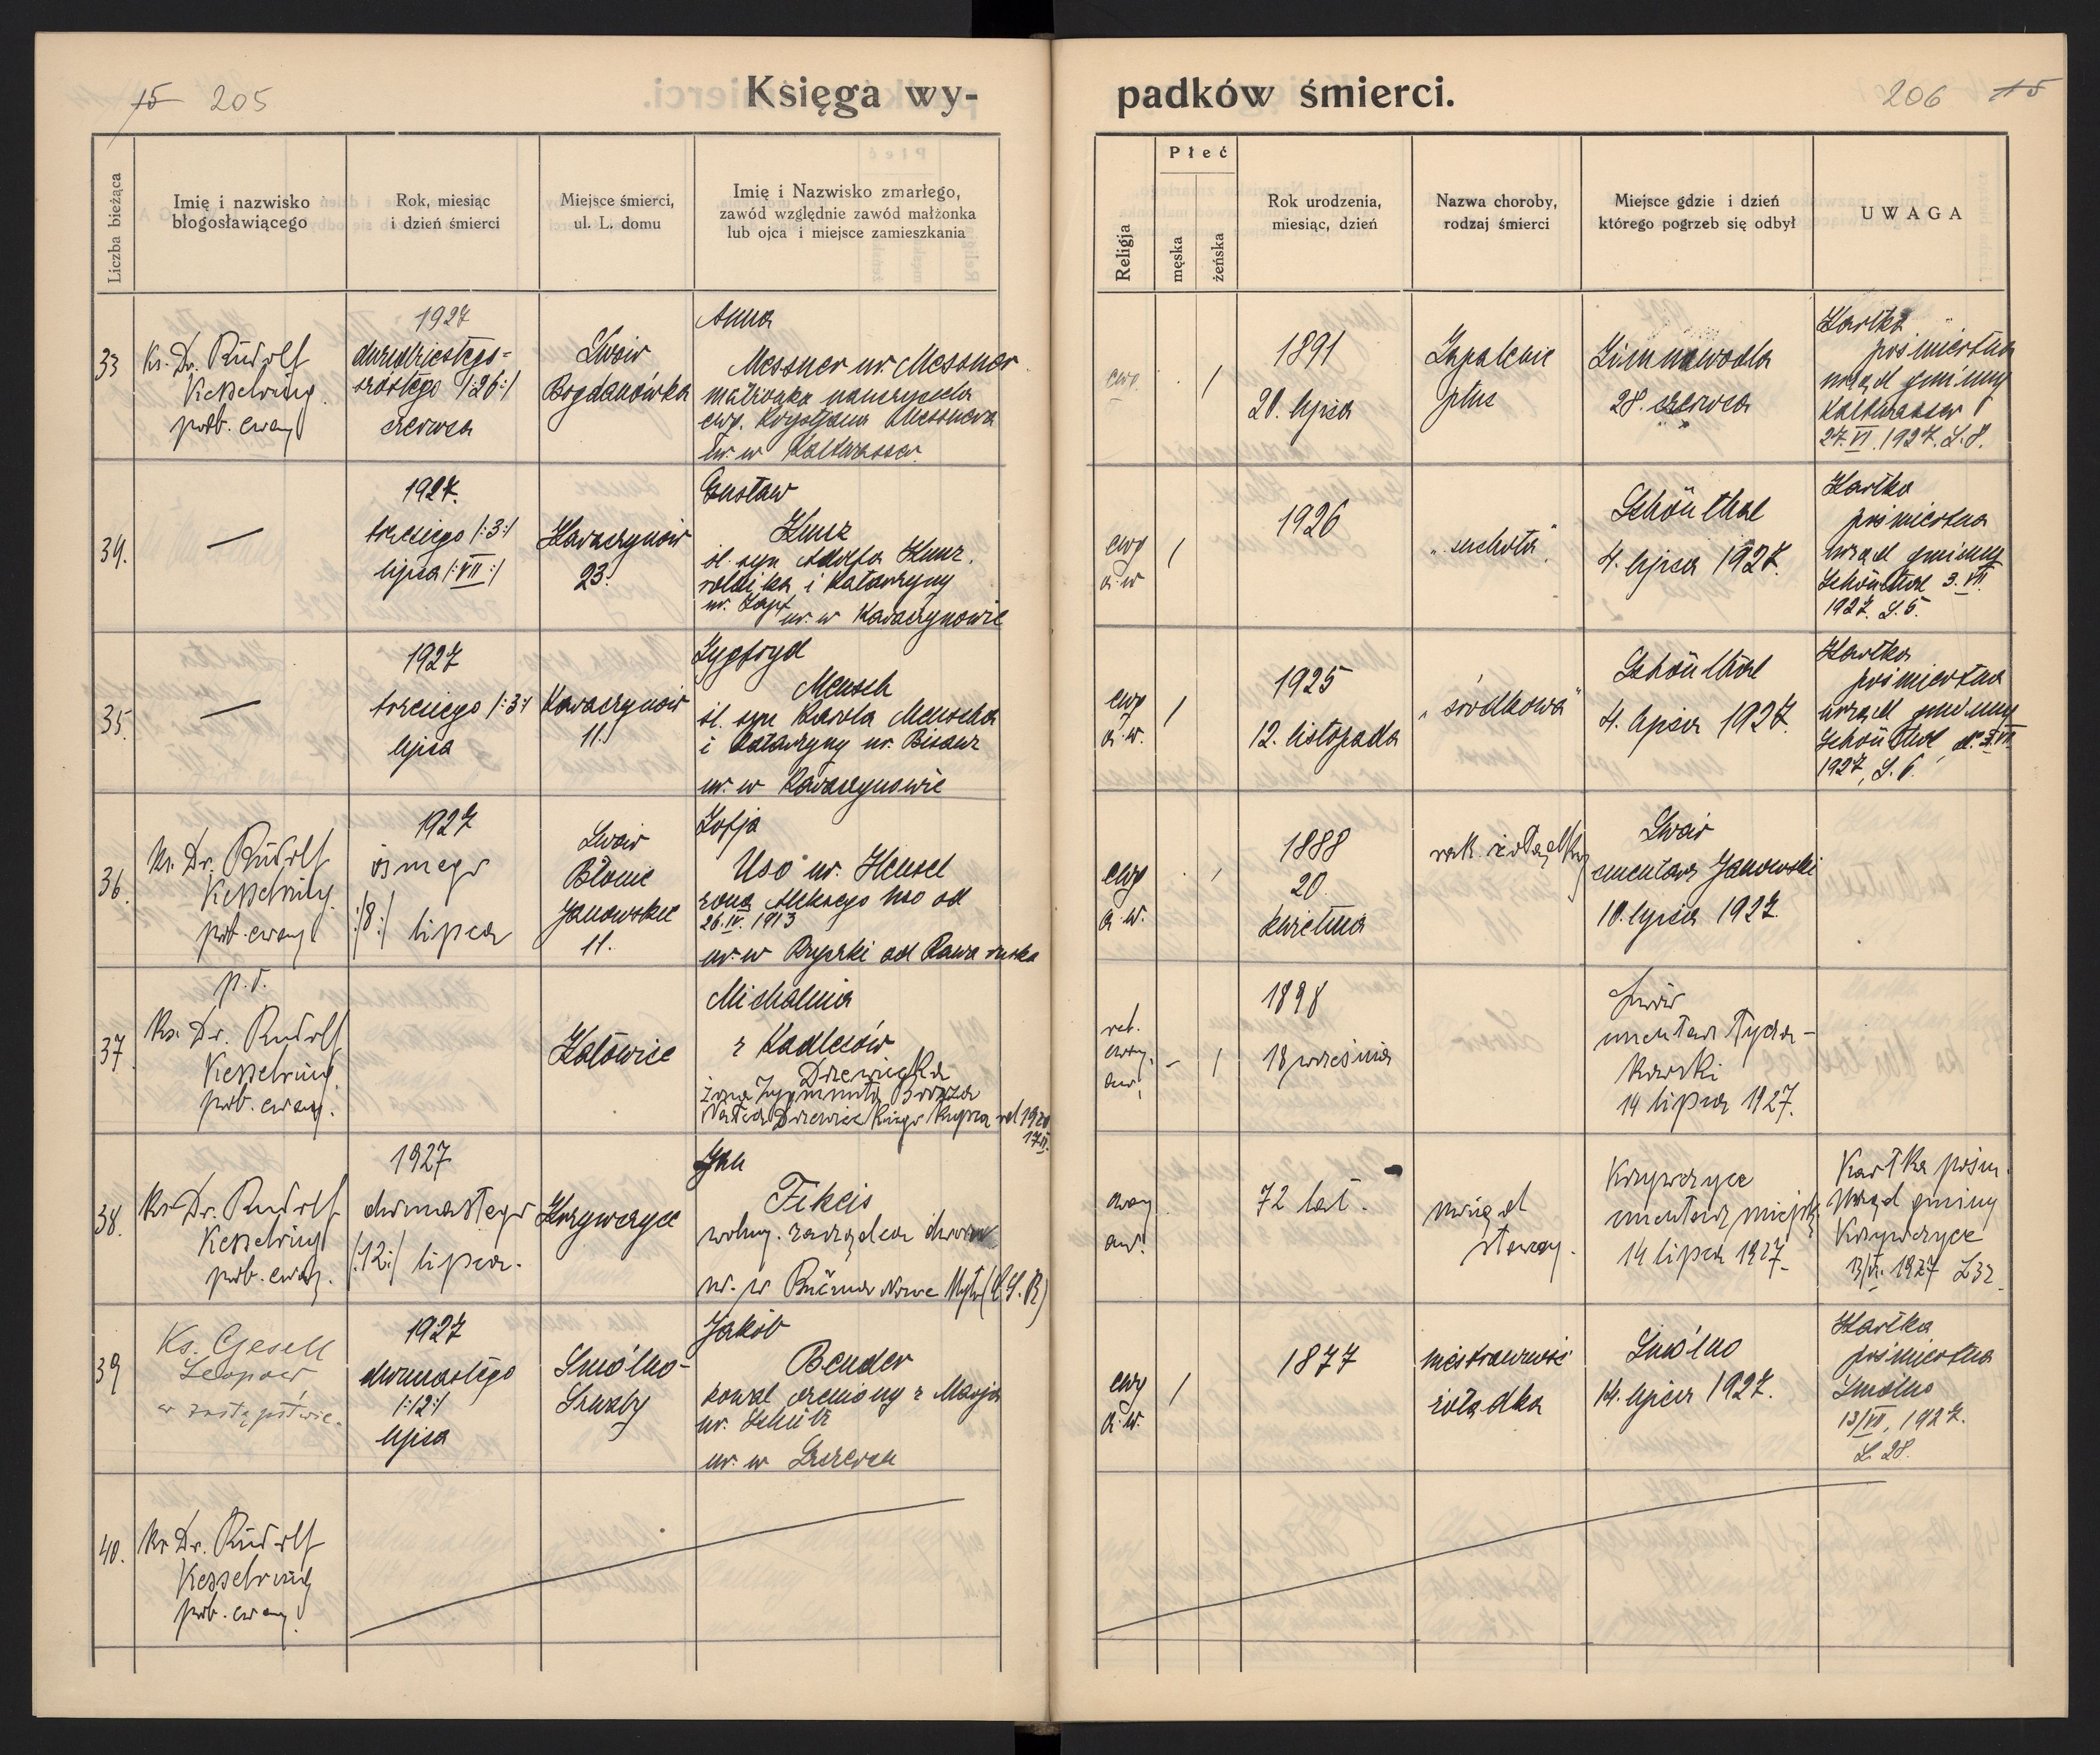 15 205
Księga wy-
padków śmierci.
206 15
Liczba bieżąca
Imię i nazwisko
błogosławiącego
Rok, miesiąc
i dzień śmierci
Miejsce śmierci,
ul. L. domu
Imię i Nazwisko zmarłego,
zawód względnie zawód małżonka
lub ojca i miejsce zamieszkania
Religja
Płeć
męska
żeńska
Rok urodzenia,
miesiąc, dzień
Nazwa choroby,
rodzaj śmierci
Miejsce gdzie i dzień
którego pogrzeb się odbył
UWAGA
33
Ks. Dr. Rudolf
Kesselring
prob. ewang
1927
dwudziestego-
szóstego /:26:/
czerwca
Lwów
Bogdanówka
Anna
Messner ur. Messner
małżonka nauczyciela
ewg. Krystjana Messnera
ur. w Kaltwasser
ewg.
/
1891
20. lipca
Zapalenie
płuc
Zimnawoda
28. czerwca
Kartka
pośmiertna
urząd gminny
Kaltwasser
27.VI.1927. L.8.
34.
—
1927.
trzeciego /:3:/
lipca /:VII:/
Karaczynów
23.
Gustaw
Kunz
śl. syn Adolfa Kunz,
rolnika i Katarzyny
ur. Zapf
ur. w Karaczynowie
ewg
a.w
/
1926
"suchoty"
Schönthal
4. lipca 1927.
Kartka
pośmiertna
urząd gminny
Schönthal 3.VII
1927. L.5.
35.
—
1927
trzeciego /:3:/
lipca
Karaczynów
11.
Zygfryd
Mensch
śl. syn Karola Menscha
i Katarzyny ur. Bisanz
ur. w Karaczynowie
ewg
a.w.
/
1925
12. listopada
"środkowa"
Schönthal
4. lipca 1927.
Kartka
pośmiertna
urząd gminny
Schönthal, d. 3.VII
1927, L.6.
36.
Ks. Dr. Rudolf
Kesselring
prob. ewang
1927
ósmego
/:8:/ lipca
Lwów
Błonie
Janowskie
11.
Zofja
Uso ur. Hensel
żona Aleksego Uso od
26.IV.1913
ur. w Rzyczki od Rawa ruska
ewg
a.w.
1888
20.
kwietnia
rak żołądka
Lwów
cmentarz Janowski
10. lipca 1927.
37
p.o.
Ks. Dr. Rudolf
Kesselring
prob. ewang.
Katowice
Michalina
z Kadleców
Drzewiecka
żona Zygmunta
Drzewieckiego kupca od 1920
17.II.
ref.
ewang.
- /
1898
18 września
Lwów
cmentarz Łycza-
kowski
14 lipca 1927.
38.
Ks Dr. Rudolf
Kesselring
prob. ewang.
1927
dwunastego
/:12:/ lipca.
Krzywczyce
Jan
Fikeis
zarządca dworu
ewang
aw.
72 lat.
uwiąd
starczy.
Krzywczyce
cmentarz miejski
14 lipca 1927.
Kartka pośm.
Urząd gminy
Krzywczyce
39
Ks. Gesell
Leopold
w zastępstwie.
1927
dwunastego
/:12:/
lipca
Smólno-
Szwaby
Jakób
Bender
kowal żeniony z Marją
ur. Schütz
ur. w Szczerca
ewg
a.w.
/
1877
niestrawność
żołądka
Smólno
14. lipca 1927.
Kartka
pośmiertna
Smólno
13/VII, 1927.
L. 28.
40.
Ks Dr. Rudolf
Kesselring
prob. ewang